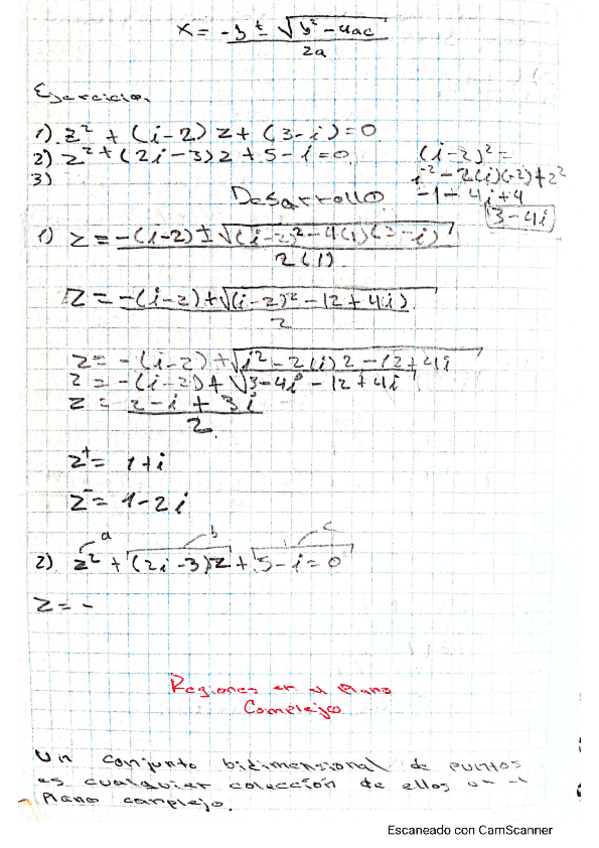 x = -b ± √b² - 4ac
2a
Ejercicio.
1). z² + (i-2) z + (3-i) = 0
2) z² + (2i-3) z + 5 - i = 0
3)
(i-2)² =
i² - 2(i)(-2) + 2²
-1 - 4i + 4
3 - 4i
Desarrollo
1) z = -(i-2) ± √(i-2)² - 4(1)(3-i)
2(1)
z = -(i-2) + √(i-2)² - 12 + 4i)
2
z = -(i-2) + √i² - 2(i)2 - 12 + 4i
z = -(i-2) + √3 - 4i - 12 + 4i
z = 2 - i + 3i
2
z⁺ = 1 + i
z⁻ = 1 - 2i
a b c
2) z² + (2i-3)z + 5 - i = 0
z = -
Regiones en el Plano
Complejo
Un conjunto bidimensional de puntos
es cualquier colección de ellos en el
Plano complejo.
Escaneado con CamScanner